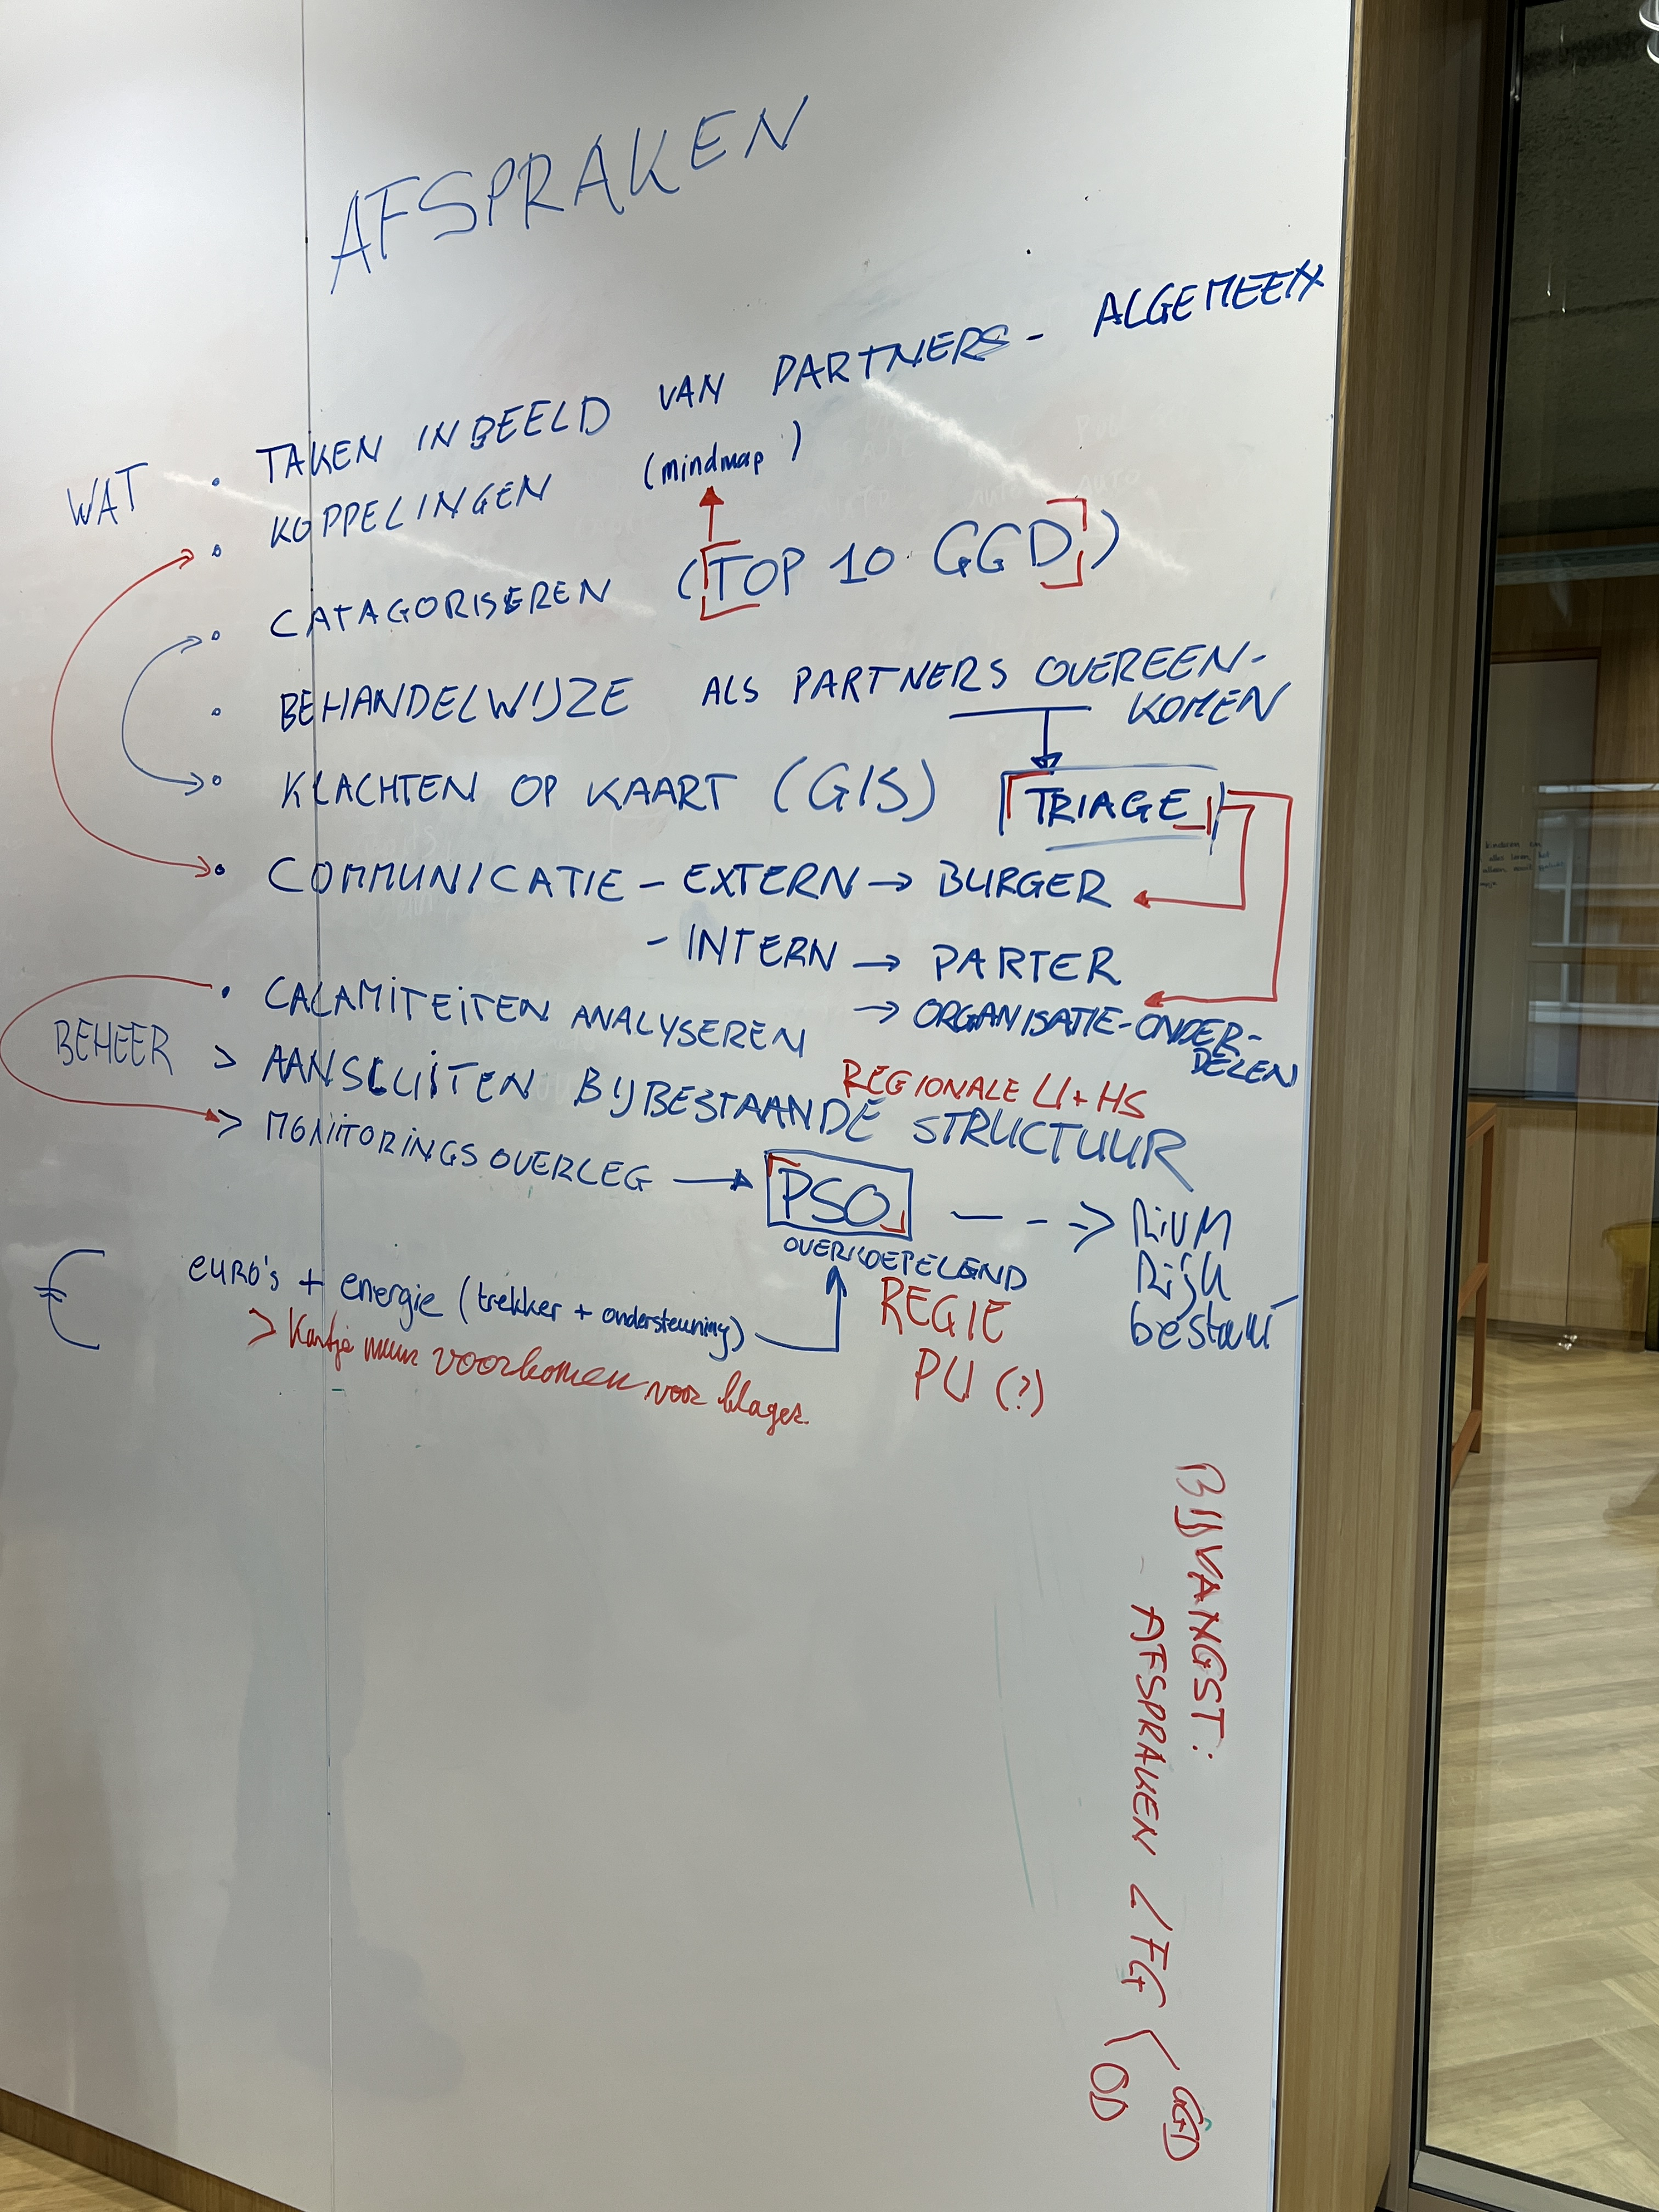 AFSPRAKEN
WAT • TAKEN IN BEELD VAN PARTNERS - ALGEMEEN
• KOPPELINGEN (mindmap)
• CATAGORISEREN (TOP 10 GGD)
• BEHANDELWIJZE ALS PARTNERS OVEREEN-
KOMEN
• KLACHTEN OP KAART (GIS) TRIAGE
• COMMUNICATIE - EXTERN → BURGER
- INTERN → PARTER
→ ORGANISATIE-ONDER-
DELEN
• CALAMITEITEN ANALYSEREN
BEHEER > AANSLUITEN BIJ BESTAANDE STRUCTUUR
REGIONALE LI + HS
> MONITORINGS OVERLEG → PSO --> RIVM
Rijk
OVERKOEPELEND
€ euro's + energie (trekker + ondersteuning)
REGIE
PU (?)
> voorkomen voor klager.
BIJVANGST:
- AFSPRAKEN / FG < GGD
OD